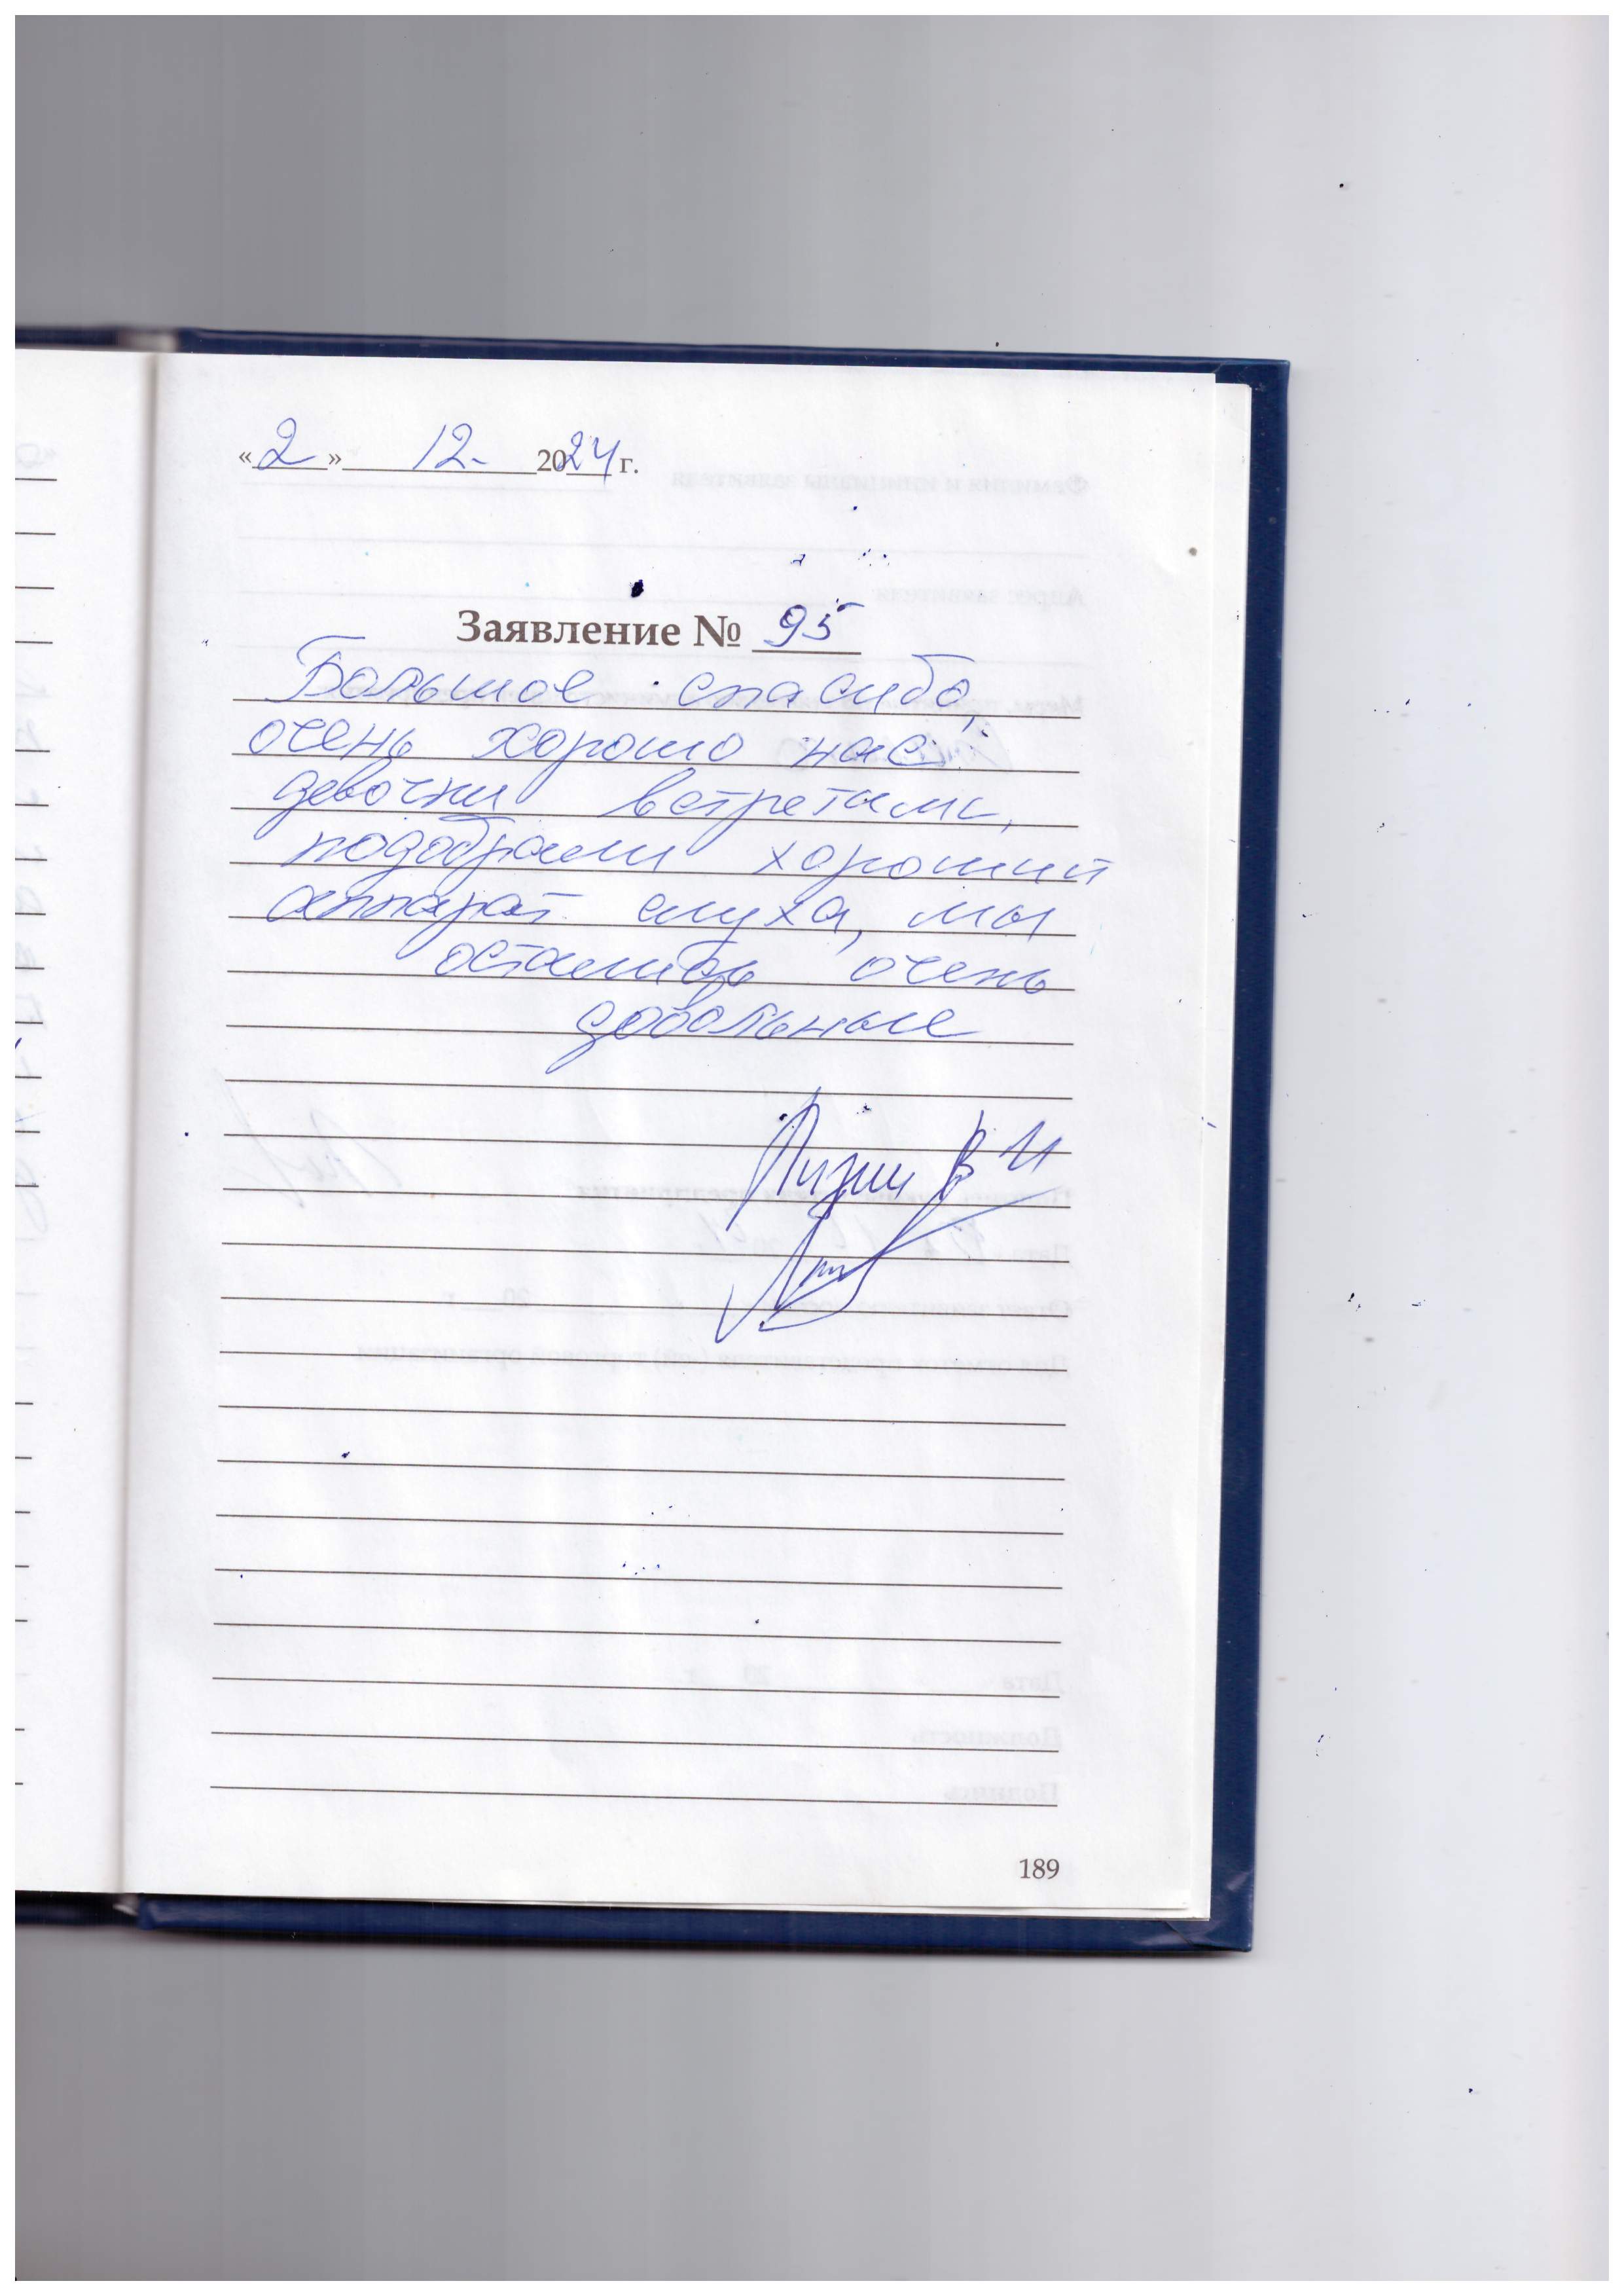 «2» 12. 2024 г.
Заявление № 95
Большое спасибо,
очень хорошо нас
девочки встретили,
подобрали хороший
аппарат слуха, мы
остались очень
довольные
В И
189